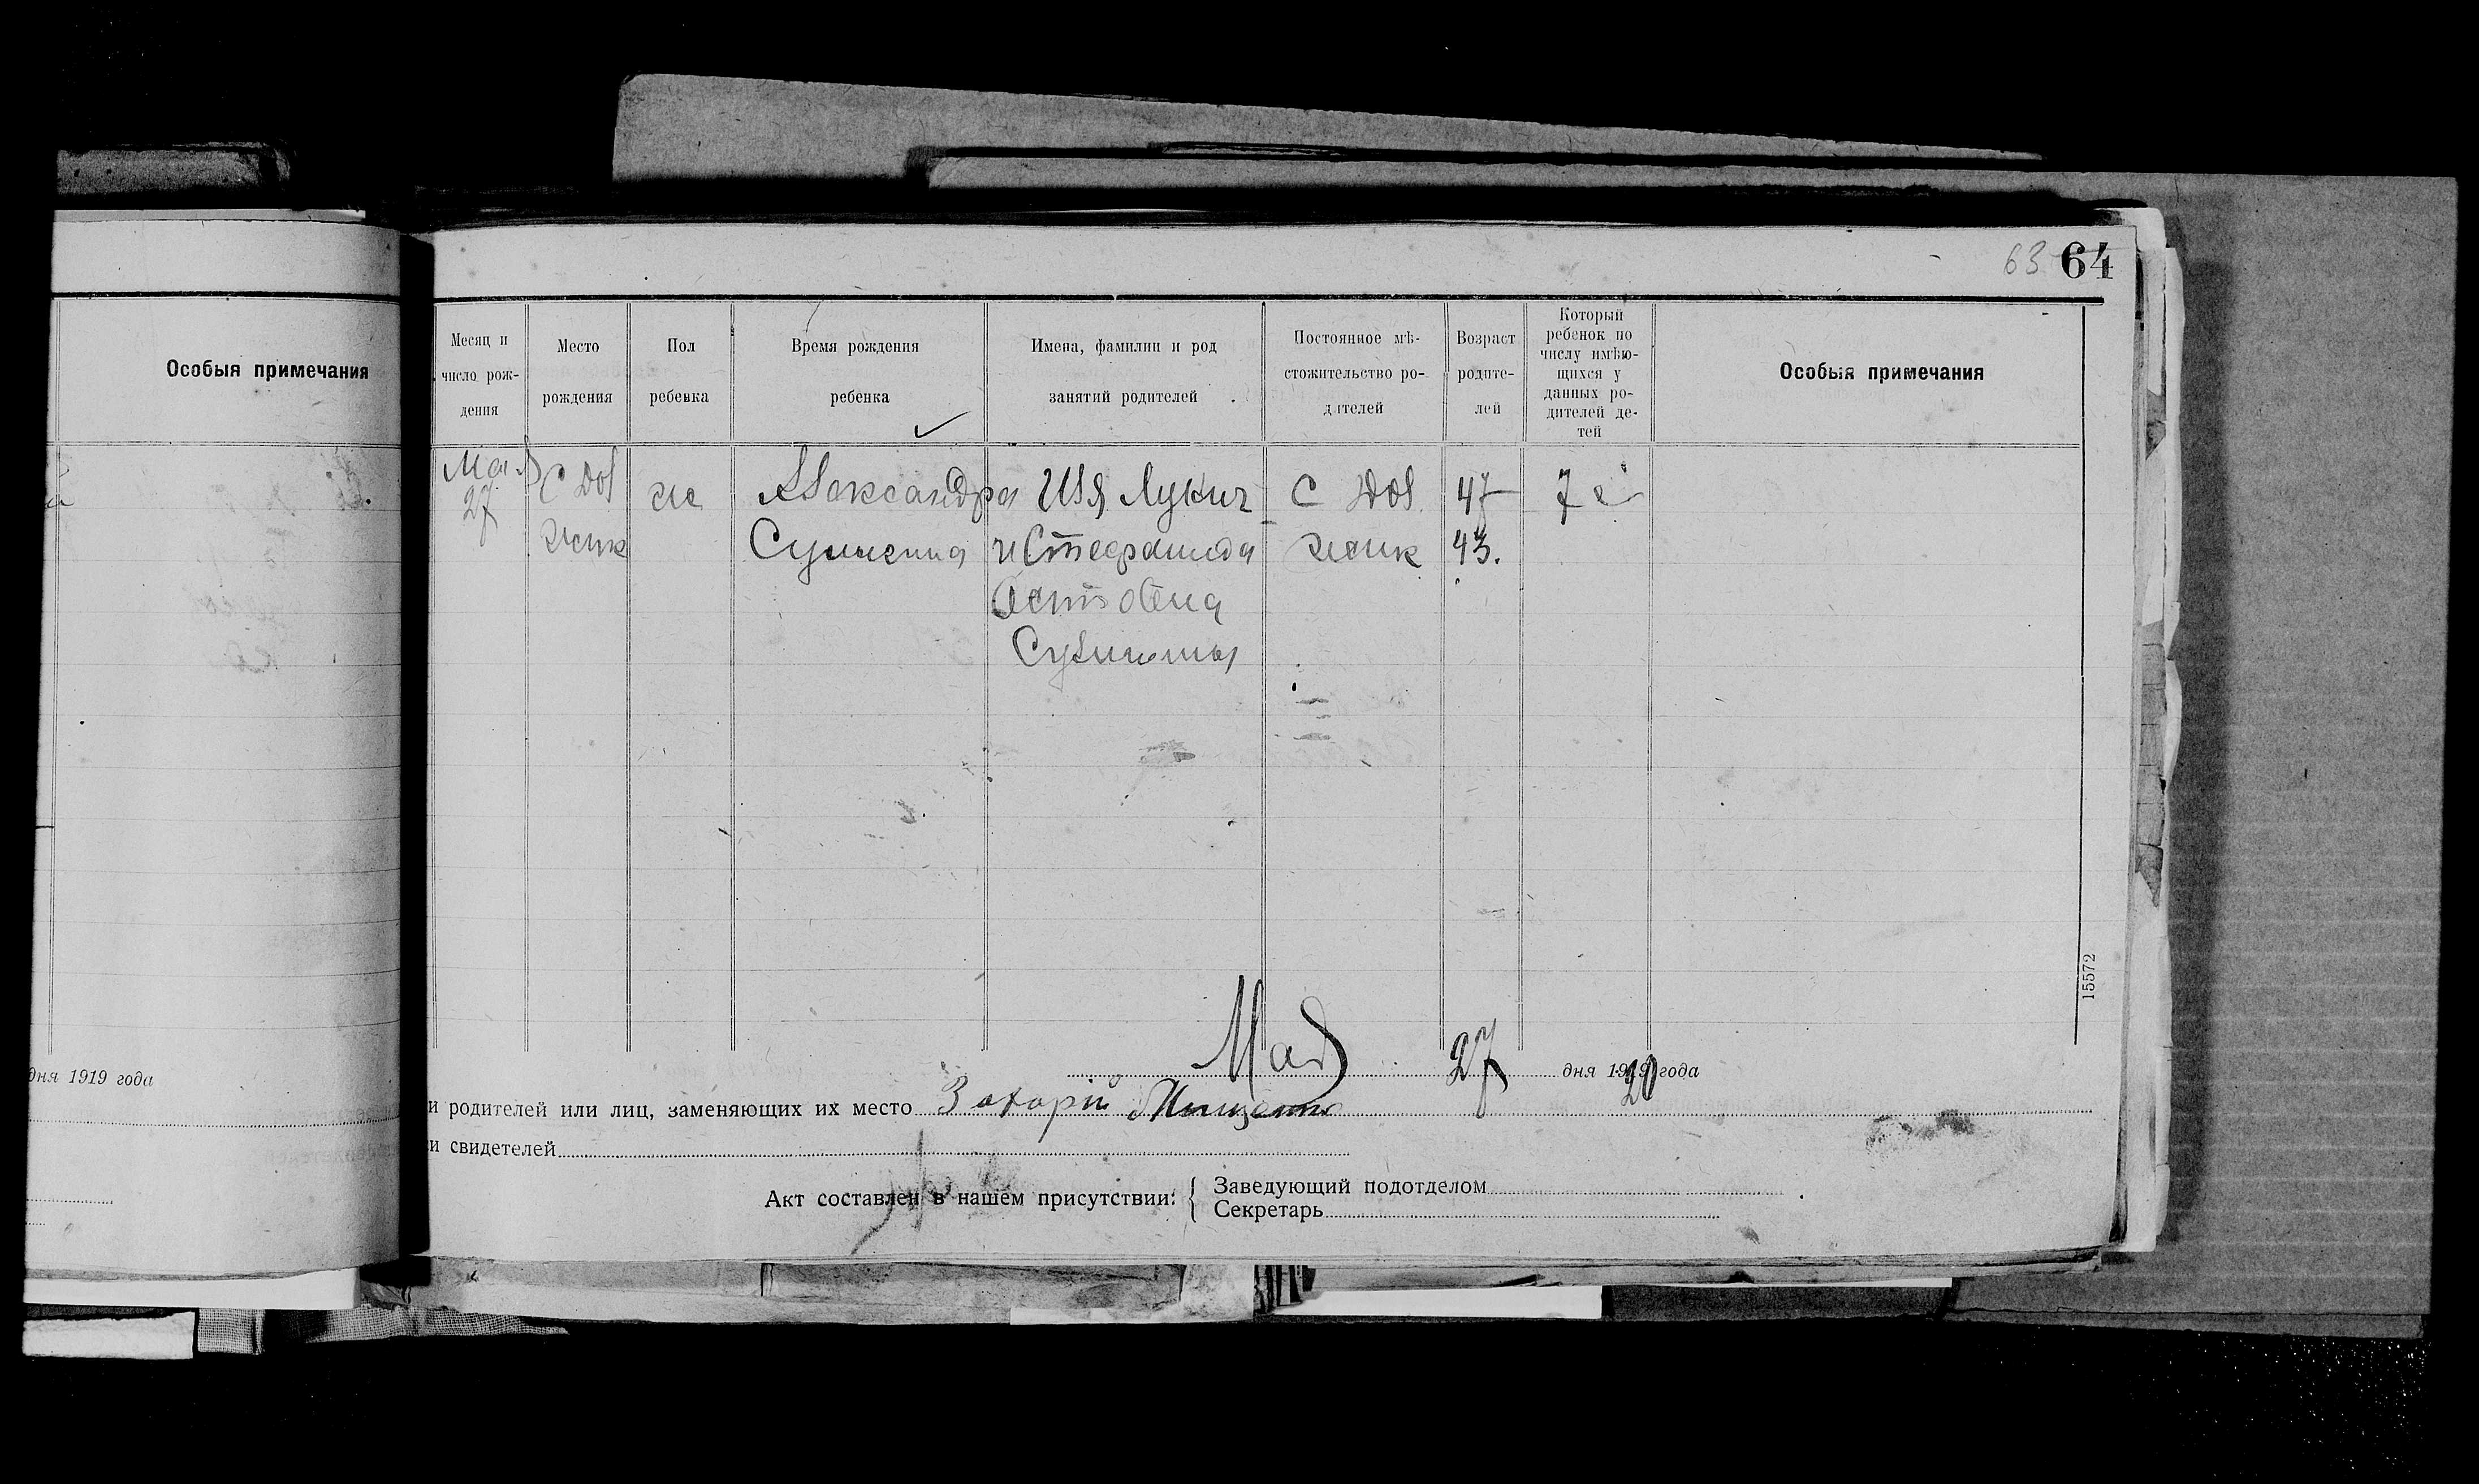 63 64
Особыя примечания
Месяц и число рождения
Место рождения
Пол ребенка
Время рождения ребенка
Имена, фамилии и род занятий родителей
Постоянное мѣстожительство родителей
Возраст родителей
Который ребенок по числу имѣющихся у данных родителей детей
Особыя примечания
Мая С Дол Александра Илья Лукич С Дол 47 7й
27 жик жс и Стефанида жик 43.
15572
дня 1919 года
Май 27 дня 1920 года
и родителей или лиц, заменяющих их место Захарій Мищенко
и свидетелей
Акт составлен в нашем присутствии: Заведующий подотделом
Секретарь